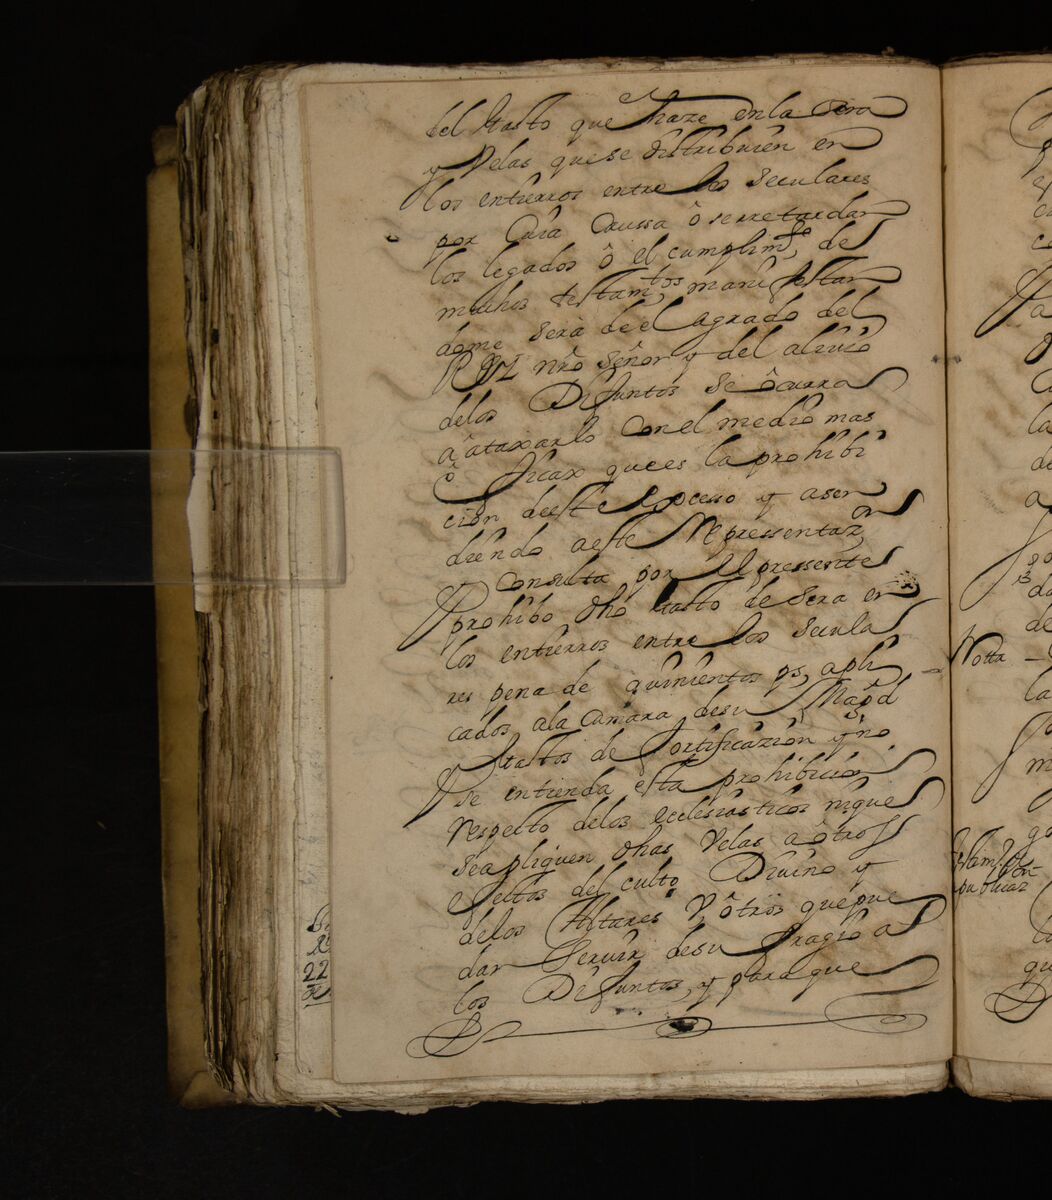 del Gasto que se haze en la Sera
y Velas que se distribuien en
los entierros entre los seculares
por Cuia Caussa ô se retardan
los legados ô el cumplim.to de
muchos testam.tos manifestan
dome serà de el agrado del
Rey nrô Señor y del alivio
delos Difuntos se ôcurra
â ataxarlo Con el medio mas
êficax que es la prohibi
cion de este excesso y aten
diendo a este Representaz.on
y Consulta por el pressente
prohibo dho Gasto de sera en
los entierros entre los secula
res pena de quinientos ps, apli
cados ala Camara de su Mag.d
y Gastos de fortificaziòn y no
se entienda esta prohibicion
respecto delos ecclesiasticos ni que
se apliquen dhas Velas a ôtros
efectos del culto Divino y
delos Altares Y ôtros que pue
dan Servir de sufragio a
los Difuntos, y para que
Notta
publicaz.on
22